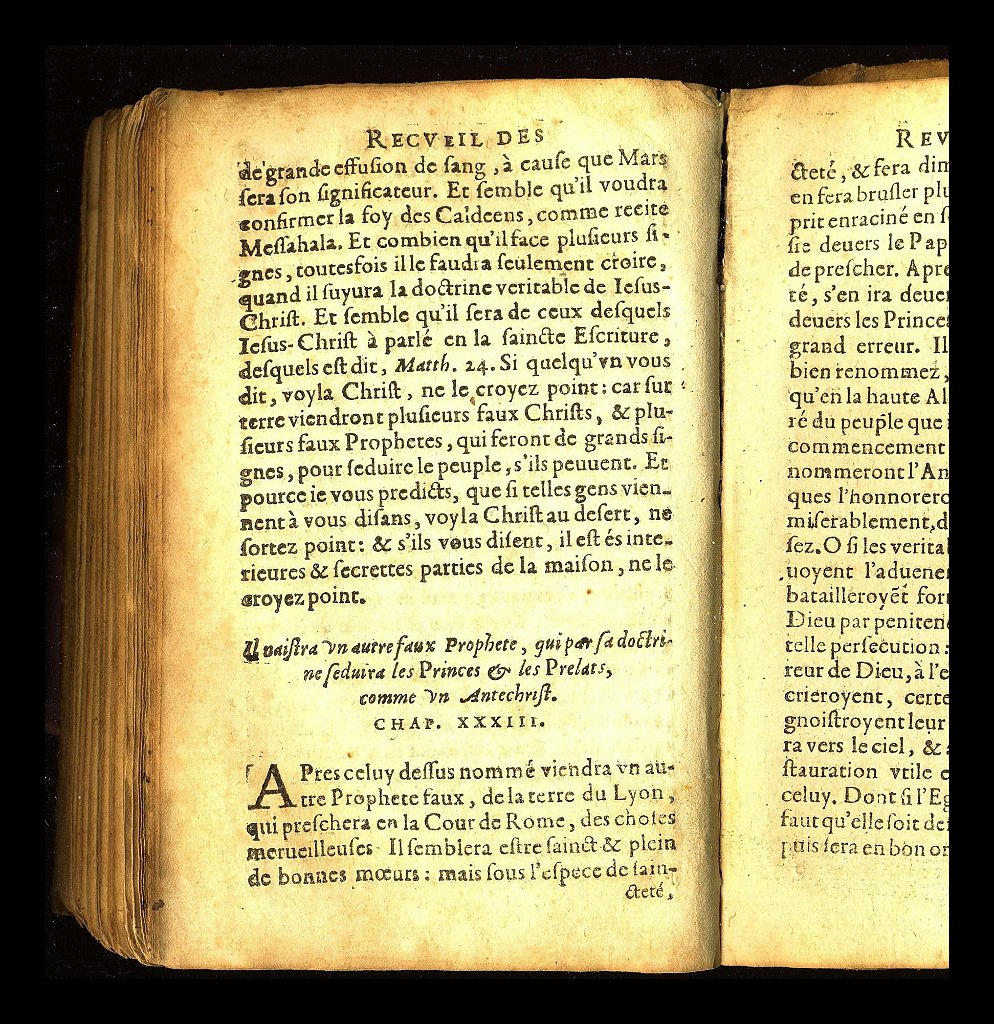 RECVEIL DES
de grande effusion de sang, à cause que Mars
sera son significateur. Et semble qu'il voudra
confirmer la foy des Caldeens, comme recite
Messahala. Et combien qu'il face plusieurs si-
gnes, toutesfois il le faudra seulement croire,
quand il suyura la doctrine veritable de Iesus-
Christ. Et semble qu'il sera de ceux desquels
Iesus-Christ à parlé en la saincte Escriture,
desquels est dit, Matth. 24. Si quelqu'vn vous
dit, voyla Christ, ne le croyez point: car sur
terre viendront plusieurs faux Christs, & plu-
sieurs faux Prophetes, qui feront de grands si-
gnes, pour seduire le peuple, s'ils peuuent. Et
pource ie vous predicts, que si telles gens vien-
nent à vous disans, voyla Christ au desert, ne
sortez point: & s'ils vous disent, il est és inte-
rieures & secrettes parties de la maison, ne le
croyez point.
Il naistra vn autre faux Prophete, qui par sa doctri-
ne seduira les Princes & les Prelats,
comme vn Antechrist.
CHAP. XXXIII.
APres celuy dessus nommé viendra vn au-
tre Prophete faux, de la terre du Lyon,
qui preschera en la Cour de Rome, des choses
merueilleuses Il semblera estre sainct & plein
de bonnes mœurs: mais sous l'espece de sain-
cteté,
REV
cteté, & fera dim
en fera brusler plu
prit enraciné en s
sie deuers le Pap
de prescher. Apre
té, s'en ira deuer
deuers les Princes
grand erreur. Il
bien renommez,
qu'en la haute Al
ré du peuple que
commencement
nommeront l'An
ques l'honnorero
miserablement, d
sez. O si les verita
uoyent l'aduene
batailleroyẽt for
Dieu par peniten
telle persecution:
reur de Dieu, à l'e
crieroyent, certe
gnoistroyent leur
ra vers le ciel, &
stauration vtile e
celuy. Dont si l'Eg
faut qu'elle soit de
puis sera en bon or